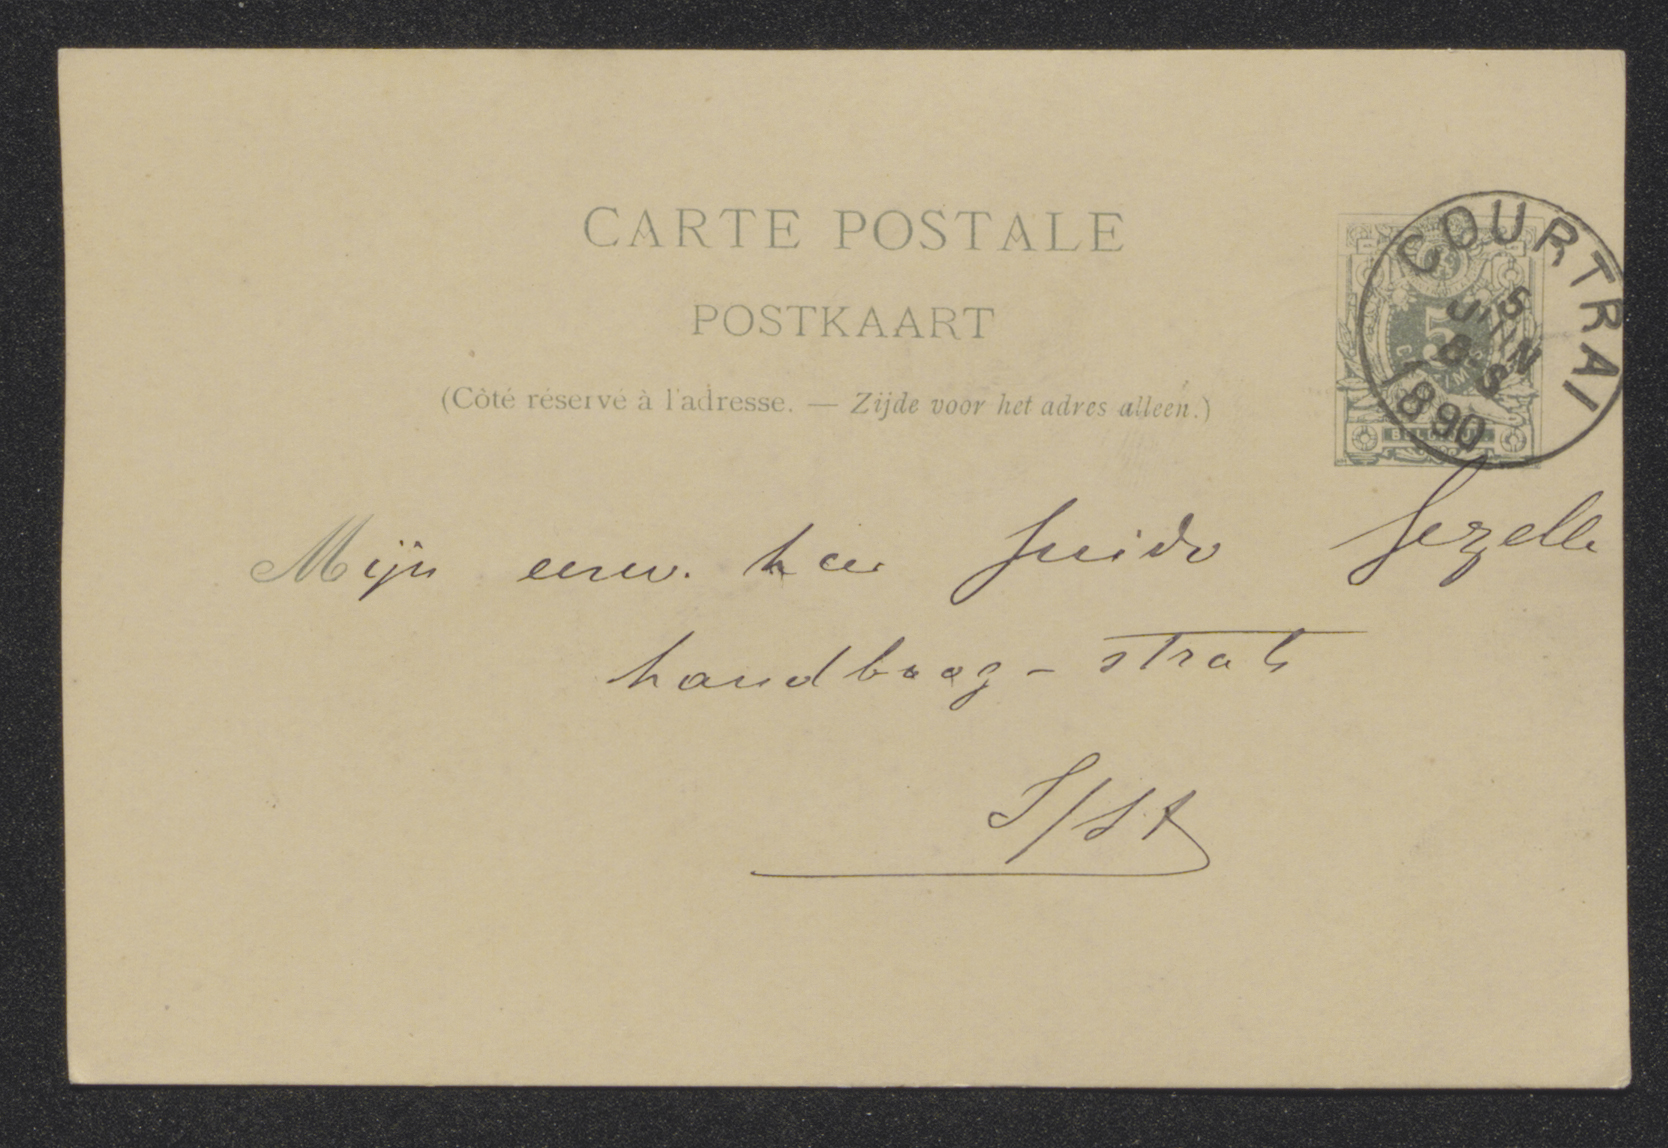 CARTE POSTALE
POSTKAART
(Côté réservé à l'adresse. — Zijde voor het adres alleen.)
COURTRAI
5
JUIN
8-S
1890
5
Mijn eerw. heer Guido Gezelle
handboog-strate